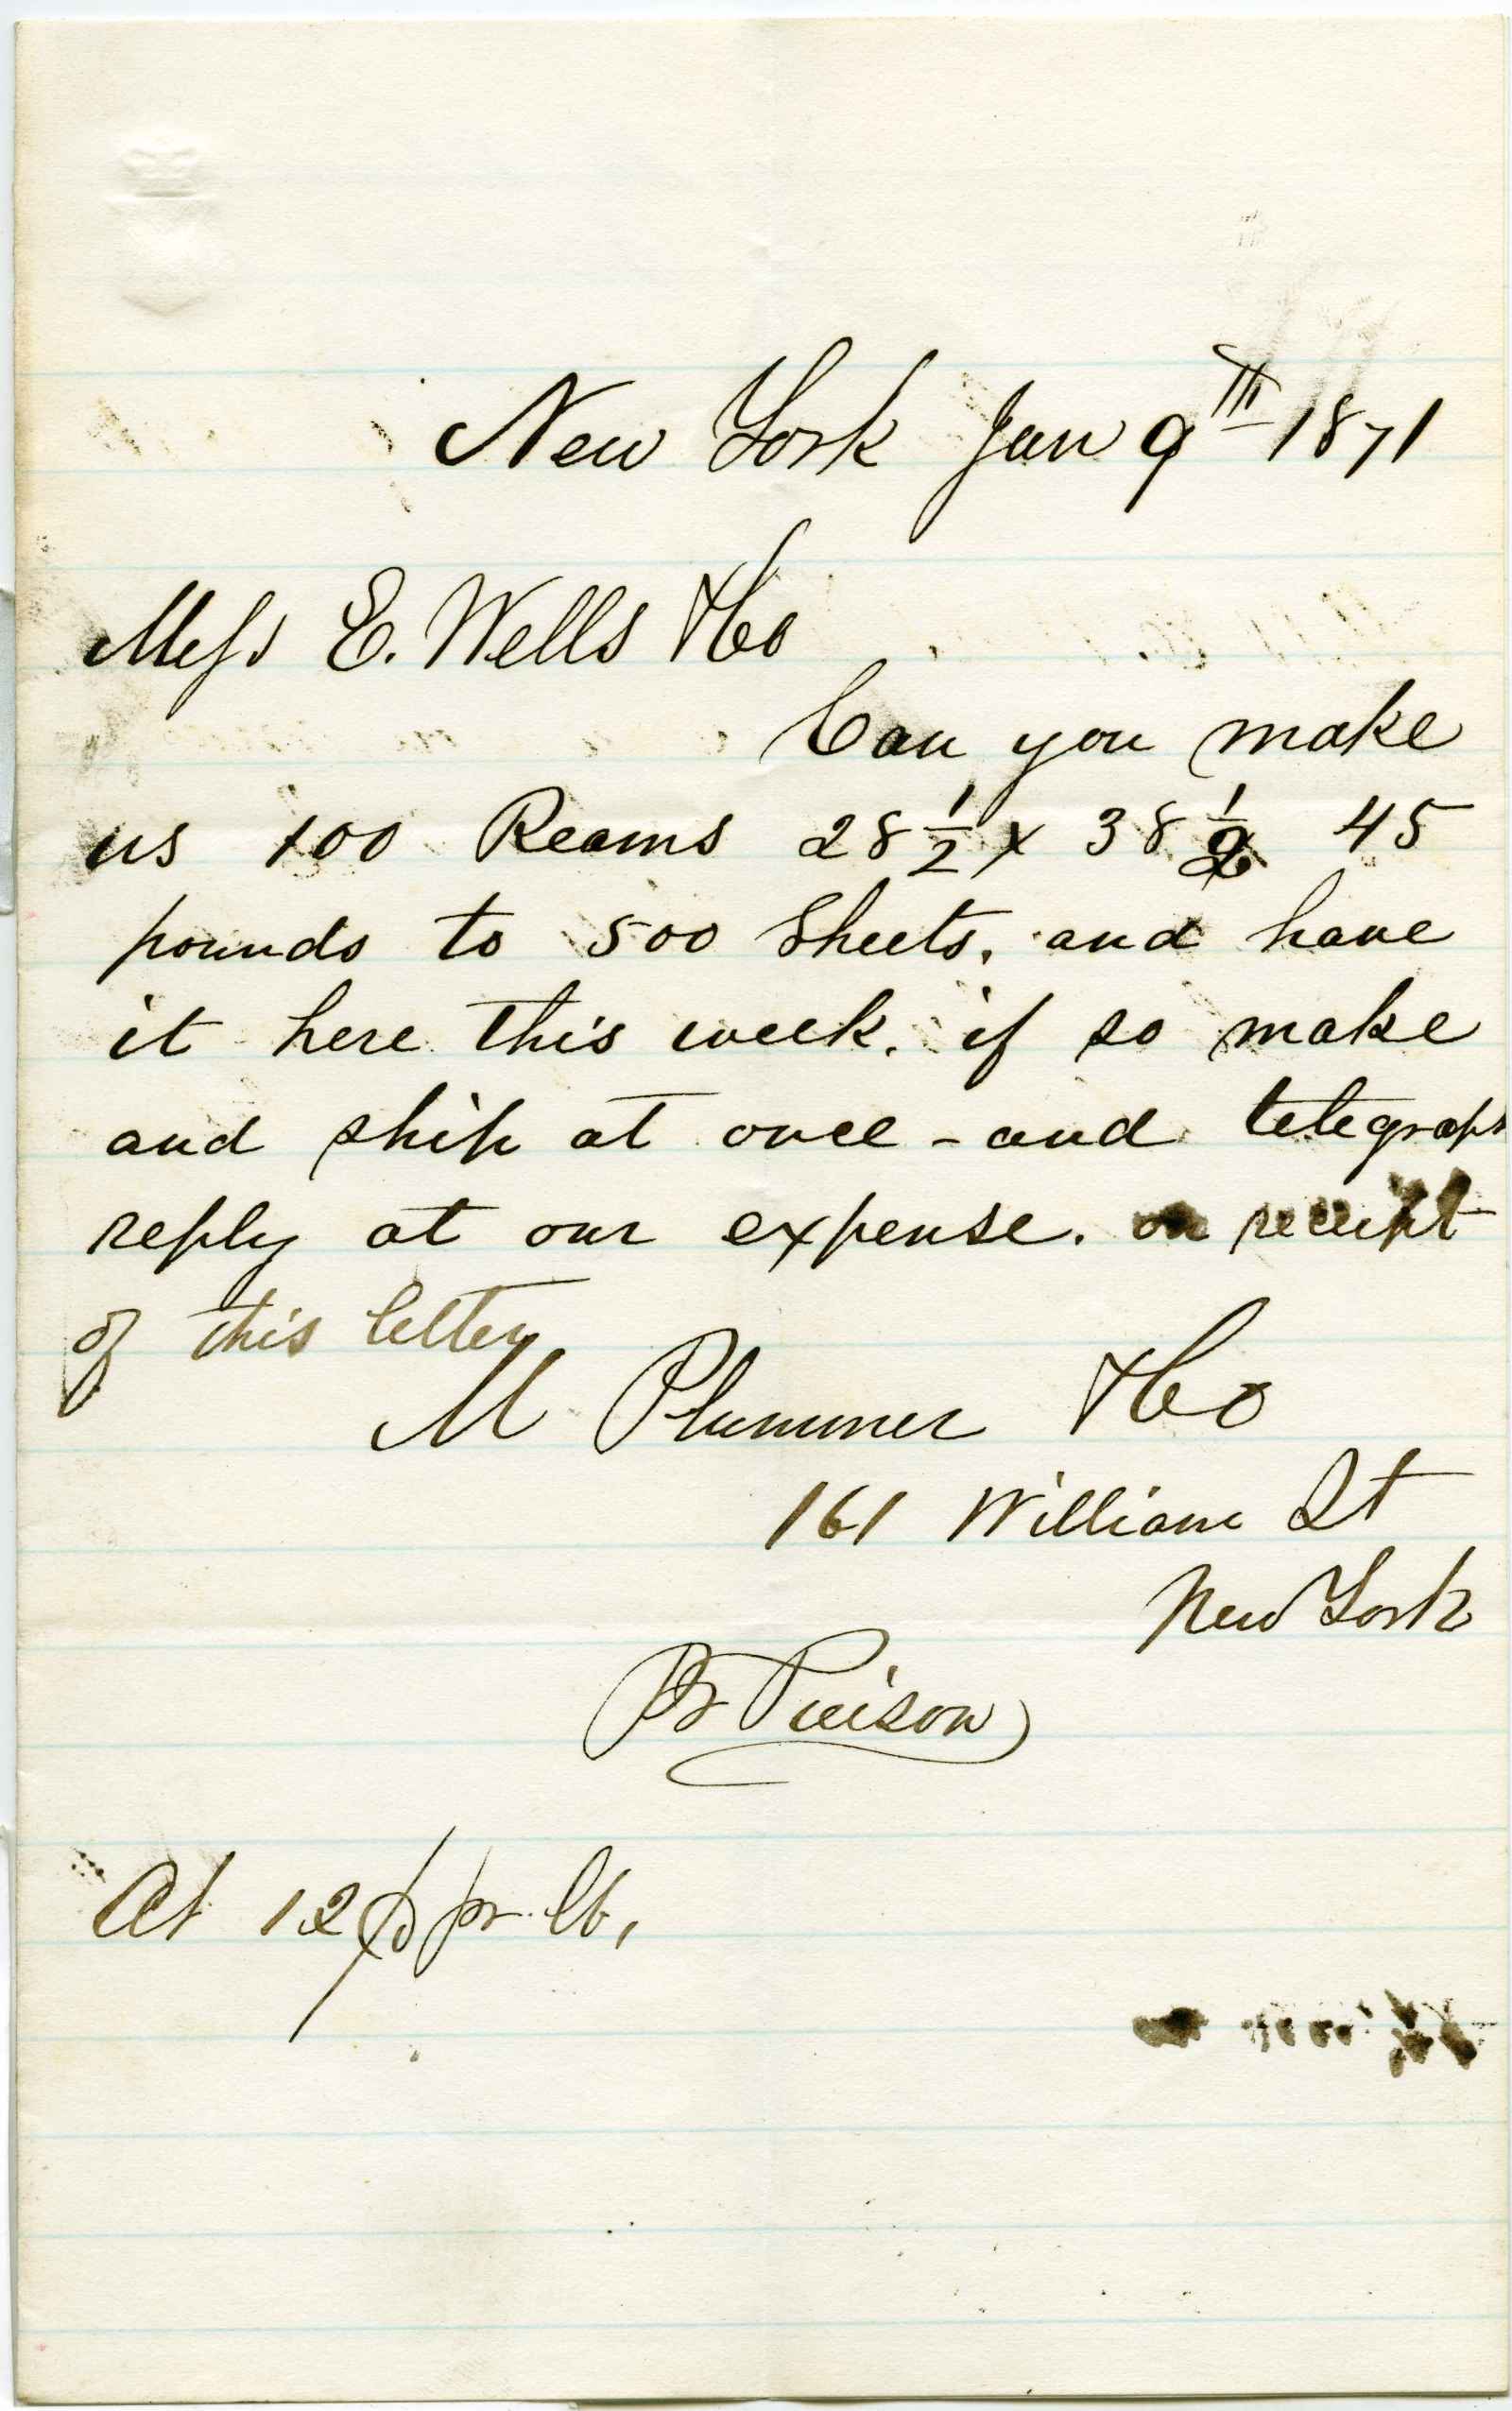 New York Jan 9th 1871
Mess E. Wells & Co
Can you make
us 100 Reams 28 1/2 x 38 1/2 45
pounds to 500 Sheets. and have
it here this week. if so make
and ship at once - and telegraph
reply at our expense. on receipt
of this letter
M Plummer & Co
161 William St
New York
Pr
At 12 ¢ pr lb.